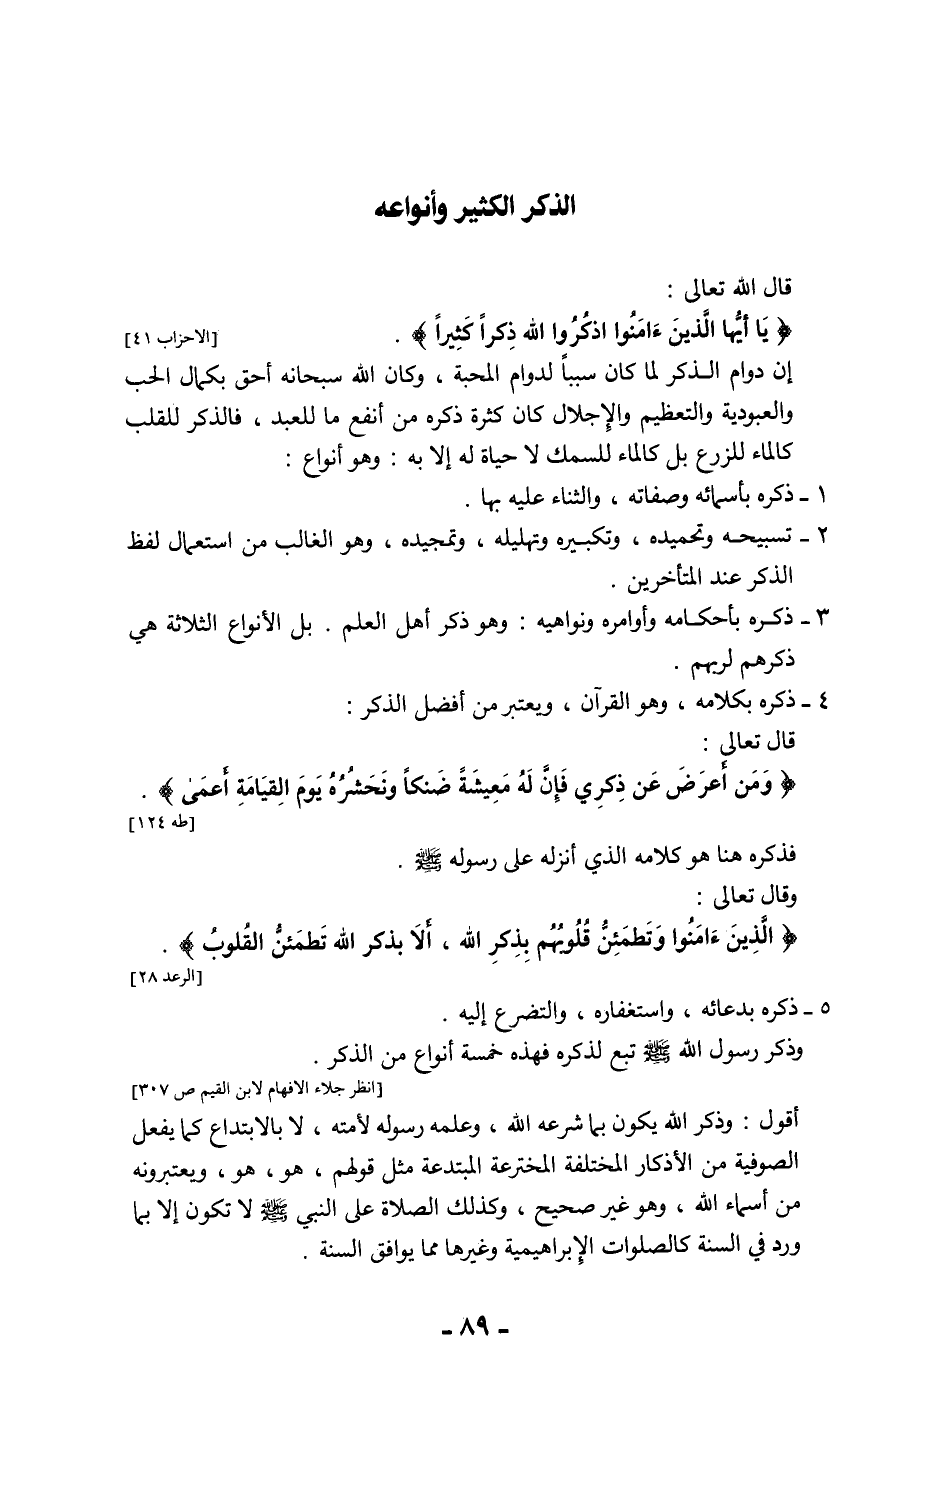 الذكر الكثير وأنواعه
قال الله تعالى :
﴿ يَا أيُّها الَّذينَ ءَامَنُوا اذكُرُوا الله ذِكراً كَثِيراً ﴾ . [الاحزاب ٤١]
إن دوام الـذكر لما كان سبباً لدوام المحبة ، وكان الله سبحانه أحق بكمال الحب
والعبودية والتعظيم والإجلال كان كثرة ذكره من أنفع ما للعبد ، فالذكر للقلب
كالماء للزرع بل كالماء للسمك لا حياة له إلا به : وهو أنواع :
١ ـ ذكره بأسمائه وصفاته ، والثناء عليه بها .
٢ ـ تسبيحـه وتحميده ، وتكبـيره وتهليله ، وتمجيده ، وهو الغالب من استعمال لفظ
الذكر عند المتأخرين .
٣ ـ ذكـره بأحكـامه وأوامره ونواهيه : وهو ذكر أهل العلم . بل الأنواع الثلاثة هي
ذكرهم لربهم .
٤ ـ ذكره بكلامه ، وهو القرآن ، ويعتبر من أفضل الذكر :
قال تعالى :
﴿ وَمَن أَعرَضَ عَن ذِكرِي فَإِنَّ لَهُ مَعِيشَةً ضَنكاً ونَحشُرُهُ يَومَ القِيَامَةِ أَعمَىٰ ﴾ .
[طه ١٢٤]
فذكره هنا هو كلامه الذي أنزله على رسوله ﷺ .
وقال تعالى :
﴿ الَّذِينَ ءَامَنُوا وَتَطمَئِنُّ قُلُوبُهُم بِذِكرِ الله ، أَلَا بذكر الله تَطمَئنُّ القُلوبُ ﴾ .
[الرعد ٢٨]
٥ ـ ذكره بدعائه ، واستغفاره ، والتضرع إليه .
وذكر رسول الله ﷺ تبع لذكره فهذه خمسة أنواع من الذكر .
[انظر جلاء الافهام لابن القيم ص ٣٠٧]
أقول : وذكر الله يكون بما شرعه الله ، وعلمه رسوله لأمته ، لا بالابتداع كما يفعل
الصوفية من الأذكار المختلفة المخترعة المبتدعة مثل قولهم ، هو ، هو ، ويعتبرونه
من أسماء الله ، وهو غير صحيح ، وكذلك الصلاة على النبي ﷺ لا تكون إلا بما
ورد في السنة كالصلوات الإبراهيمية وغيرها مما يوافق السنة .
- ٨٩ -